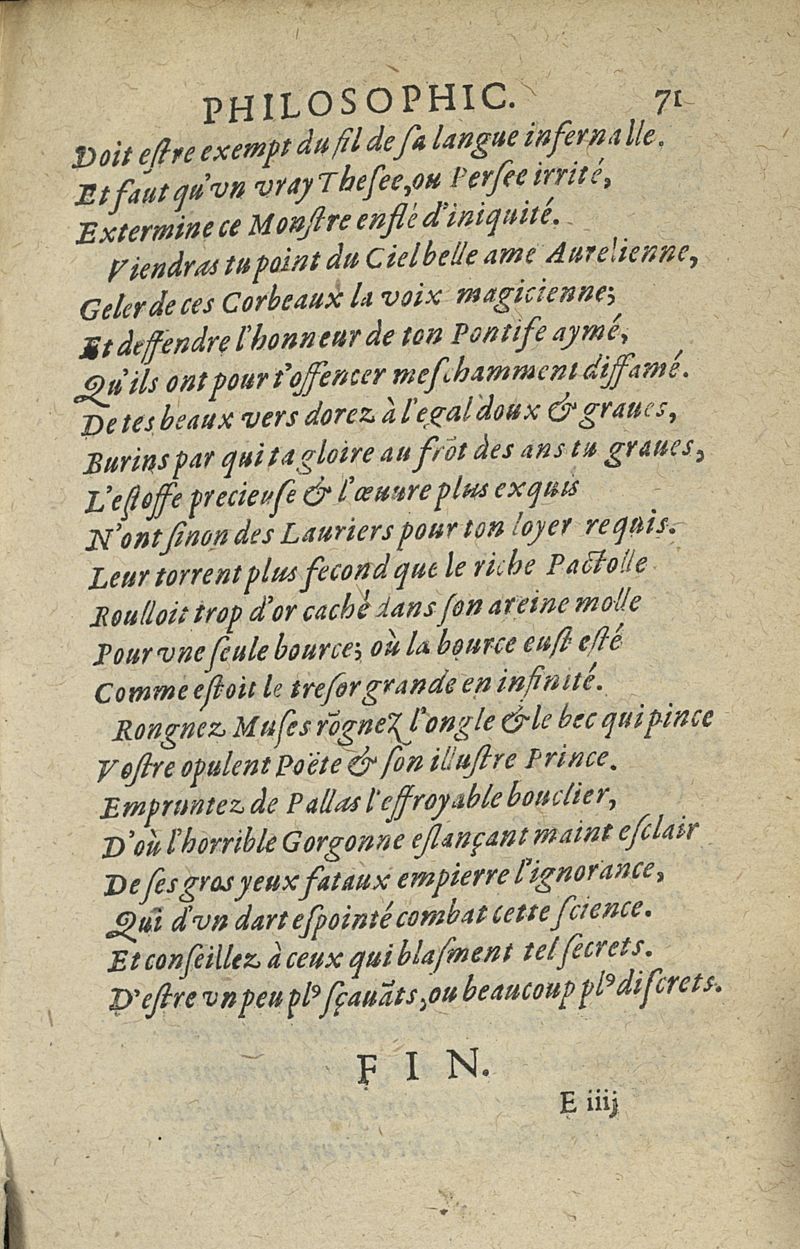 PHILOSOPHIC. 71
Doit eſtre exempt du fil de ſa langue infernalle.
Et faut qu'vn vray Theſee, ou Perſee irrité,
Extermine ce Monſtre enflé d'iniquité.
Viendras tu point du Ciel belle ame Aurelienne,
Geler de ces Corbeaux la voix magicienne;
Et deffendre l'honneur de ton Pontife aymé,
Qu'ils ont pour t'offencer meſchamment diffamé.
De tes beaux vers dorez à l'egal doux & graues,
Burins par qui ta gloire au frõt des ans tu graues,
L'eſtoffe precieuſe & l'œuure plus exquis
N'ont ſinon des Lauriers pour ton loyer requis.
Leur torrent plus fecond que le riche Pactolle
Roulloit trop d'or caché dans ſon areine molle
Pour vne ſeule bource; où la bource euſt eſté
Comme eſtoit le treſor grande en infinité.
Rongnez Muſes rõgnez l'ongle & le bec qui pince
Voſtre opulent Poëte & ſon illuſtre Prince.
Empruntez de Pallas l'effroyable bouclier,
D'où l'horrible Gorgonne eſlançant maint eſclair
De ſes gros yeux fataux empierre l'ignorance,
Qui d'vn dart eſpointé combat cette ſcience.
Et conſeillez à ceux qui blaſment tel ſecrets.
D'eſtre vn peu plꝰ ſçauãts, ou beaucoup plꝰ diſcrets.
FIN.
E iiij